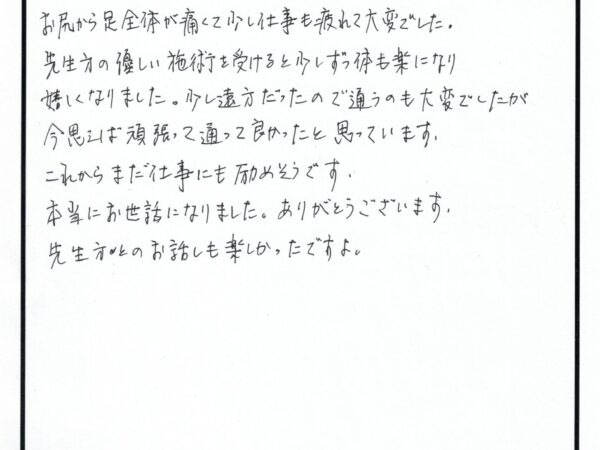 お尻から足全体が痛くて少し仕事も疲れて大変でした。
先生方の優しい施術を受けると少しずつ体も楽になり
嬉しくなりました。少し遠方だったので通うのも大変でしたが
今思えば頑張って通って良かったと思っています.
これからまだ仕事にも励めそうです.
本当にお世話になりました。ありがとうございます.
先生方とのお話しも楽しかったですよ。